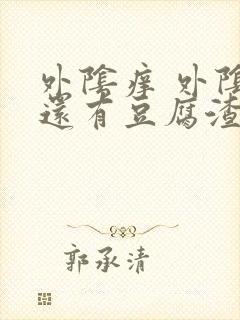 外陰痒 外陰
還有豆腐渣
郭承清